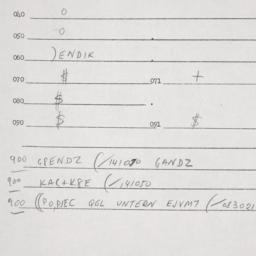 040 0
050 0
060 )ENDIK
070 $ 071 +
080 $
090 $ 091 $
900 GPENDZ (/141050 GANDZ
900 KAC+KPE (/141050
900 ((POPIEC GGL UNTERN EJVM7 (/083021